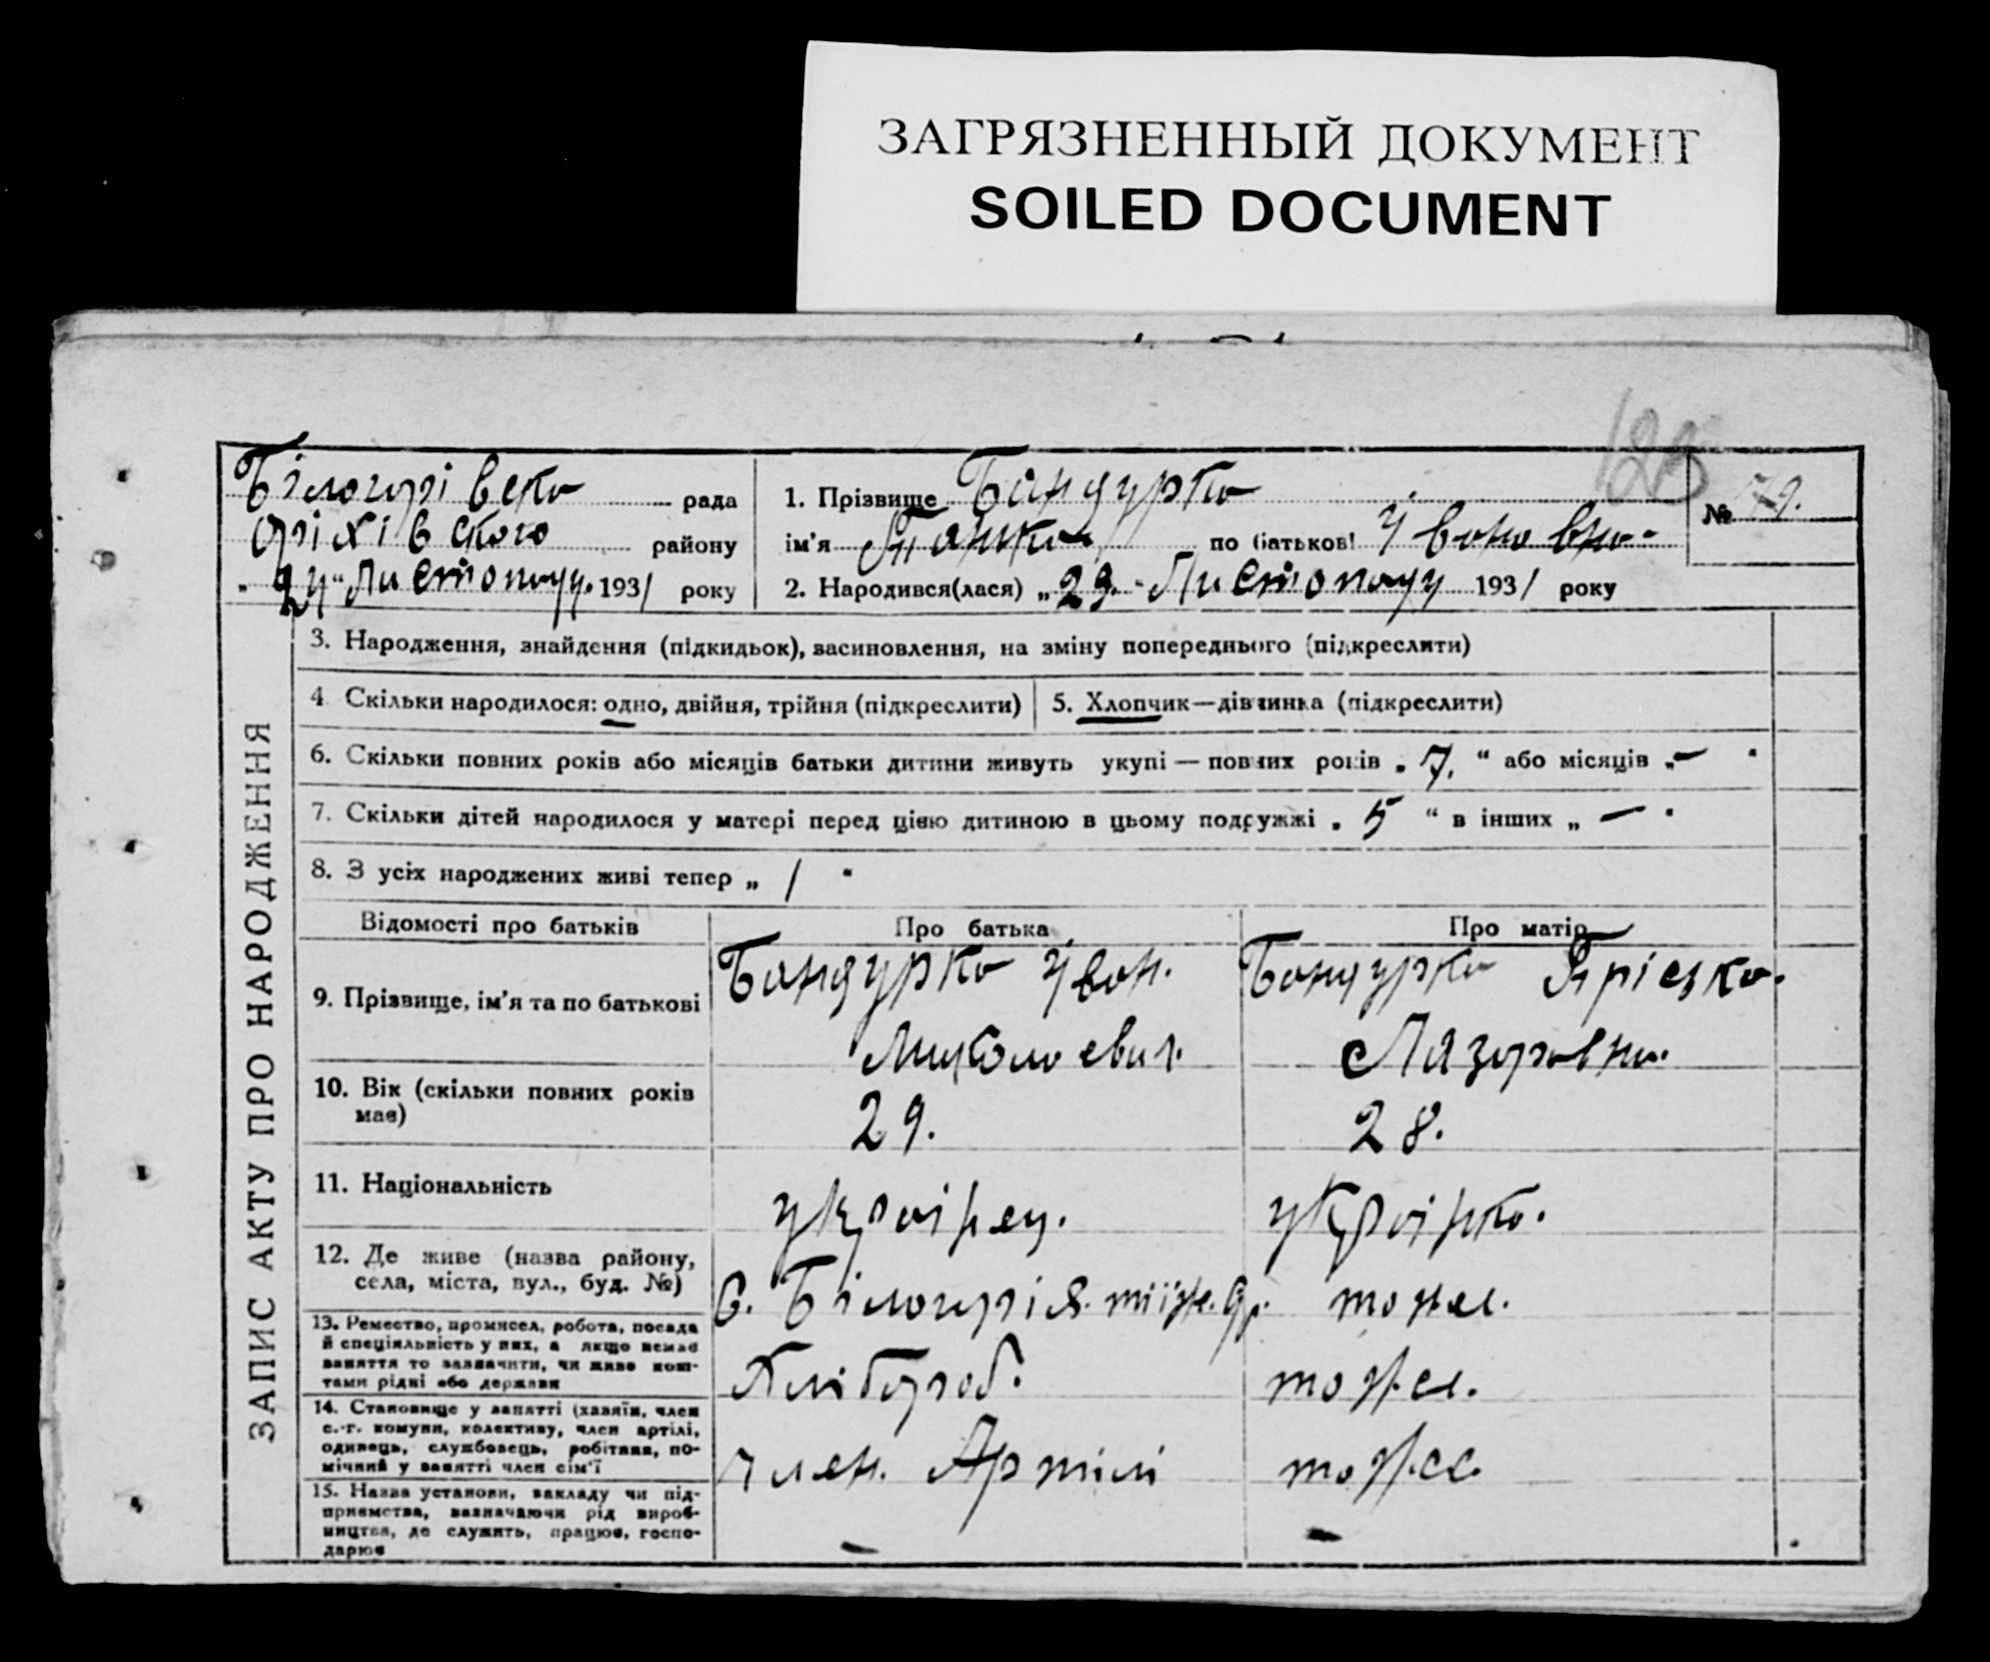 ЗАГРЯЗНЕННЫЙ ДОКУМЕНТ
SOILED DOCUMENT
125
Білогірівска рада
Оріхівского району
"24" Листопаду 1931 року
1. Прізвище Бандурка
ім'я по батькові Ивановна
2. Народився(лася) „29." Листопаду 1931 року
№ 79.
ЗАПИС АКТУ ПРО НАРОДЖЕННЯ
3. Народження, знайдення (підкидьок), засиновлення, на зміну попереднього (підкреслити)
4. Скільки народилося: одно, двійня, трійня (підкреслити)
5. Хлопчик—дівчинка (підкреслити)
6. Скільки повних років або місяців батьки дитини живуть укупі — повних років „7." або місяців „—"
7. Скільки дітей народилося у матері перед цією дитиною в цьому подружжі „5" в інших „—"
8. З усіх народжених живі тепер „1"
Відомості про батьків
Про батька
Про матір
9. Прізвище, ім'я та по батькові
Бандурка Иван.
Миколаевич.
Бандурка Пріська.
Лазаровна.
10. Вік (скільки повних років
має)
29.
28.
11. Національність
украінец.
украінка.
12. Де живе (назва району,
села, міста, вул., буд. №)
с. Білогірія.
тоже.
13. Ремество, промисел, робота, посада
й спеціяльність у них, а якщо немає
заняття то зазначити, чи живе кош-
тами рідні або держави
Хлібороб.
тоже.
14. Становище у занятті (хазяїн, член
с.-г. комуни, колективу, член артілі,
одинець, службовець, робітник, по-
мічний у занятті член сім'ї
член. Артілі
тоже.
15. Назва установи, закладу чи під-
приємства, зазначаючи рід вироб-
ництва, де служить, працює, госпо-
дарює
—
—